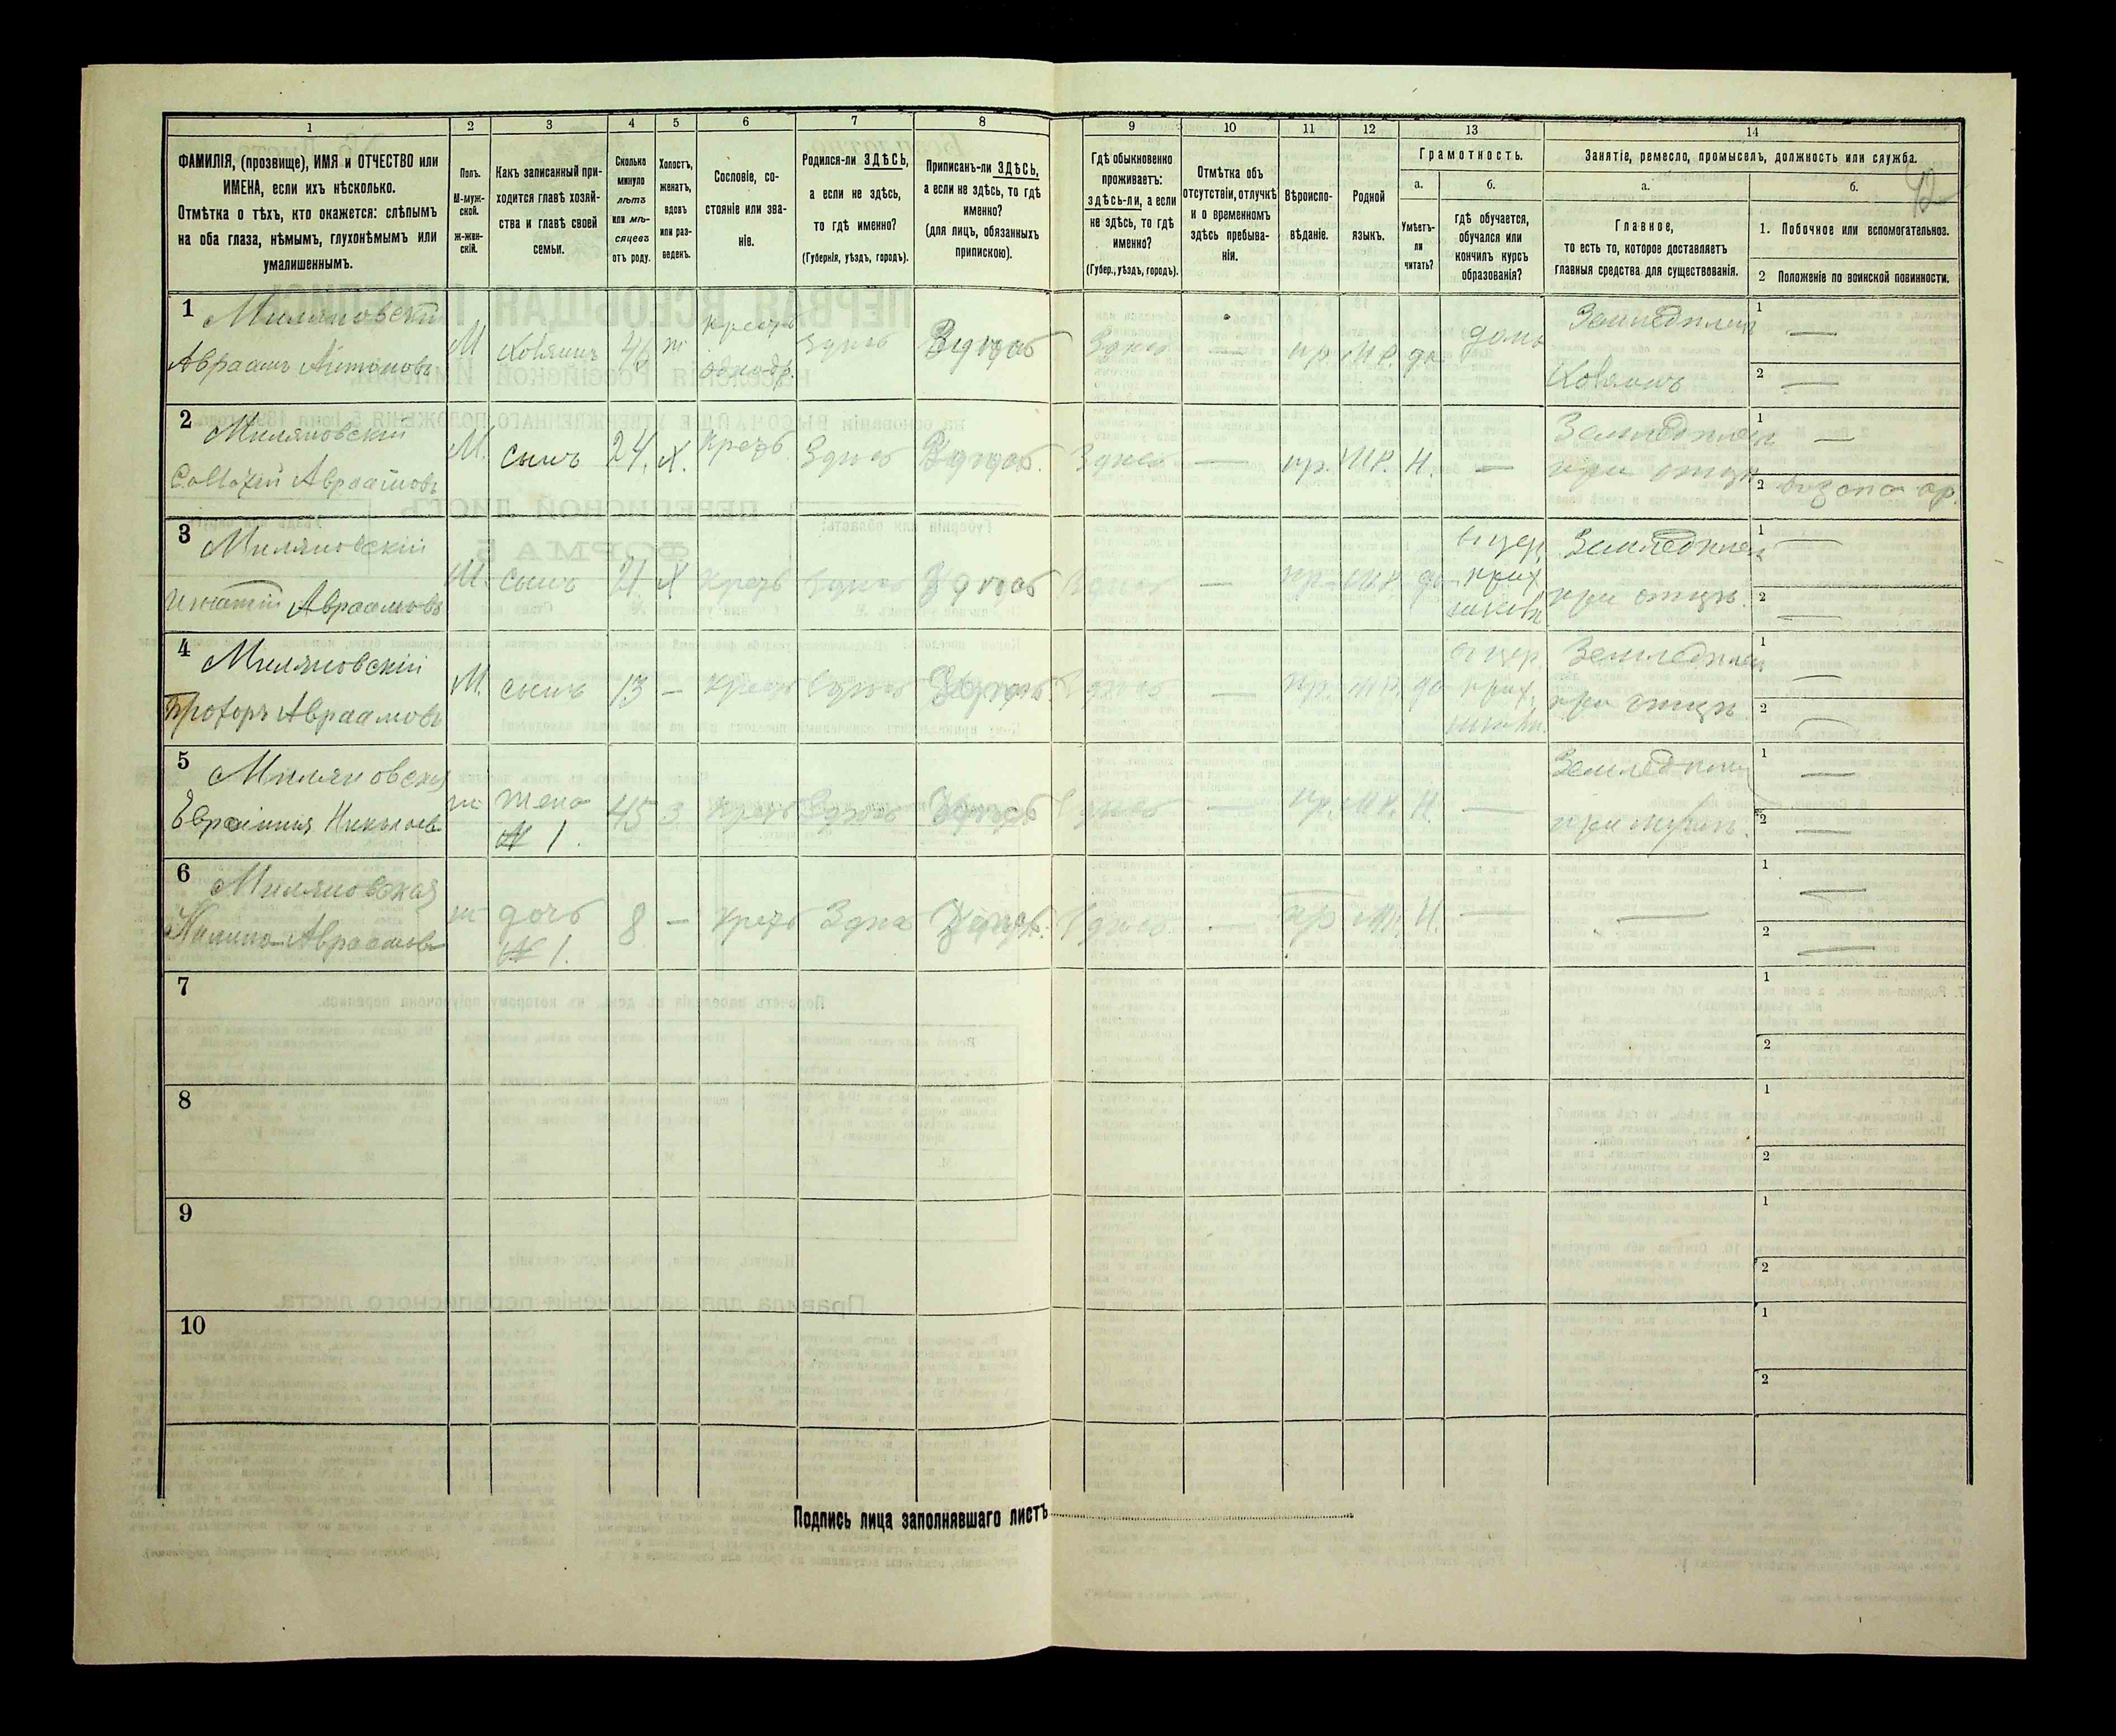 1 2 3 4 5 6 7 8 9 10 11 12 13 14
ФАМИЛІЯ, (прозвище), ИМЯ и ОТЧЕСТВО или
ИМЕНА, если ихъ нѣсколько.
Отмѣтка о тѣхъ, кто окажется: слѣпымъ
на оба глаза, нѣмымъ, глухонѣмымъ или
умалишеннымъ.
Полъ.
М-муж-
ской.
ж-жен-
скій.
Какъ записанный при-
ходится главѣ хозяй-
ства и главѣ своей
семьи.
Сколько
минуло
лѣтъ
или мѣ-
сяцевъ
отъ роду.
Холостъ,
женатъ,
вдовъ
или раз-
веденъ.
Сословіе, со-
стояніе или зва-
ніе.
Родился-ли ЗДѢСЬ,
а если не здѣсь,
то гдѣ именно?
(Губернія, уѣздъ, городъ).
Приписанъ-ли ЗДѢСЬ,
а если не здѣсь, то гдѣ
именно?
(для лицъ, обязанныхъ
припискою).
Гдѣ обыкновенно
проживаетъ:
здѣсь-ли, а если
не здѣсь, то гдѣ
именно?
(Губер., уѣздъ, городъ).
Отмѣтка объ
отсутствіи, отлучкѣ
и о временномъ
здѣсь пребыва-
ніи.
Вѣроиспо-
вѣданіе.
Родной
языкъ.
Грамотность.
а.
Умѣетъ-
ли
читать?
б.
гдѣ обучается,
обучался или
кончилъ курсъ
образованія?
Занятіе, ремесло, промыселъ, должность или служба.
а.
Главное,
то есть то, которое доставляетъ
главныя средства для существованія.
б.
1. Побочное или вспомогательное.
2 Положеніе по воинской повинности.
42
1 Миляновскій
Авраамъ Антоновъ
М Хозяинъ 46 ж крест. Здѣсь Здѣсь Здѣсь — пр. М.Р. да дома
Земледѣлец
Хозяинъ
1 —
2 —
2 Миляновскій
Авраамовъ
М. сынъ 24. х. крест. Здѣсь Здѣсь. Здѣсь — пр. М.Р. Н. —
Земледѣлец
при отцѣ
1 —
2
3 Миляновскій
Игнатій Авраамовъ
М. сынъ 21 х крест Здѣсь Здѣсь Здѣсь — пр. М.Р. да
в цер.
прих
школѣ
Земледѣлец
при отцѣ.
1 —
2 —
4 Миляновскій
Прохоръ Авраамовъ
М. сынъ 13 — крест Здѣсь Здѣсь Здѣсь — пр. М.Р. да
в цер.
прих.
школѣ.
Земледѣлец
при отцѣ
1 —
2 —
5 Миляновская
Николаев
ж жена
№ 1.
45 з крест Здѣсь Здѣсь Здѣсь — пр. М.Р. Н. —
Земледѣлец
при мужѣ.
1 —
2 —
6 Миляновская
Авраамов
ж дочь
№ 1.
8 — крест Здѣсь Здѣсь. Здѣсь — пр М.Р. Н. — —
1 —
2 —
7 1
2
8 1
2
9 1
2
10 1
2
Подпись лица заполнявшаго листъ